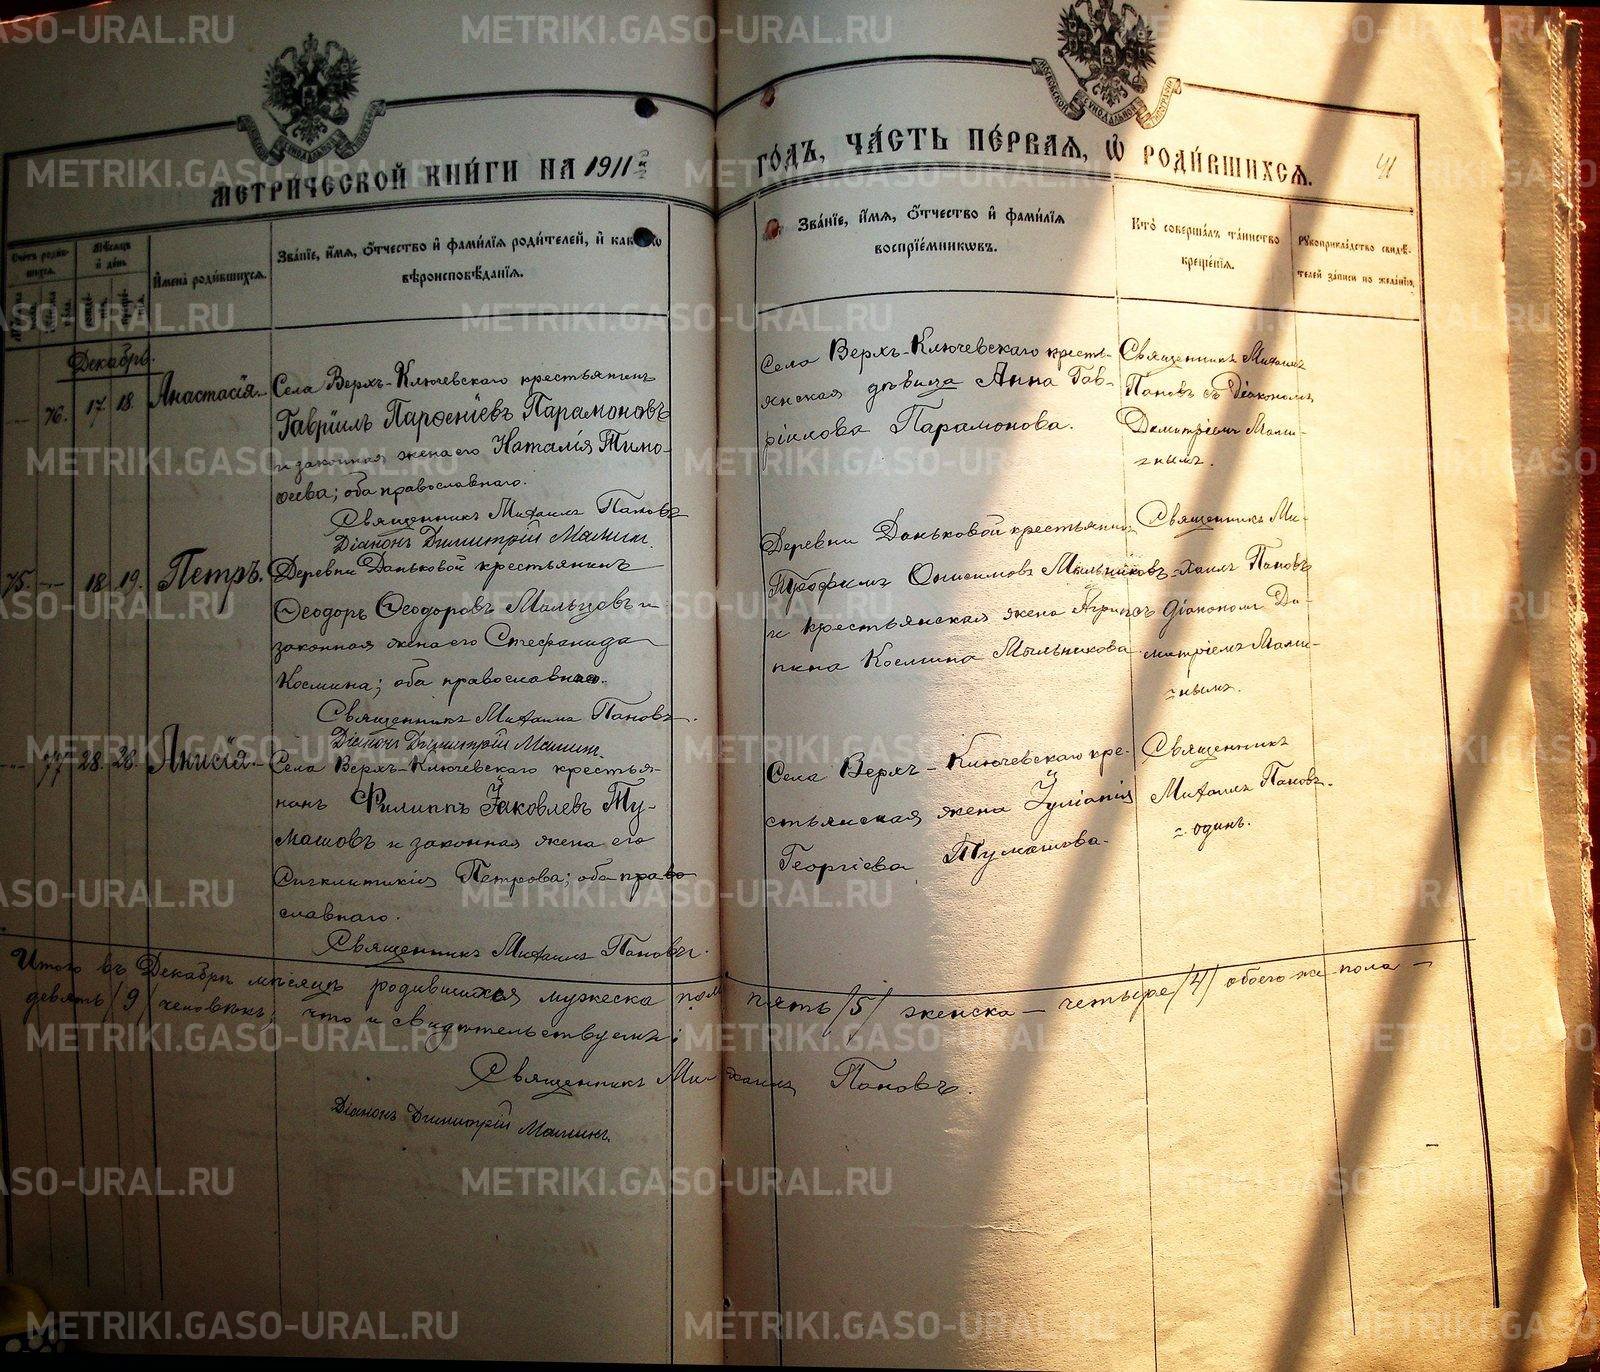 МЕТРИ́ЧЕСКОЙ КНИ́ГИ НА 1911 ГО́ДЪ, ЧА́СТЬ ПЕ́РВАЯ, Ѿ РОДИ́ВШИХСЯ.
41
МОСКОВСКОЙ СѴНОДАЛЬНОЙ ТИПОГРАФІИ
Счетъ роди-
вшихся.
Мѣсяцъ
и день
Имена родившихся.
Званіе, имя, отчество и фамилія родителей, и какого
вѣроисповѣданія.
Званіе, имя, отчество и фамилія
воспріемниковъ.
Кто совершалъ таинство
крещенія.
Рукоприкладство свидѣ-
телей записи по желанію.
Декабрь.
76. 17. 18. Анастасія.
Села Верхъ-Ключевскаго крестьянин
Гавріилъ Парѳеніевъ Парамоновъ
и законная жена его Наталія Тимо-
ѳеева; оба православнаго.
Священникъ Михаилъ Пановъ
Діаконъ Димитрій Малинъ.
Села Верхъ-Ключевскаго кресть-
янская дѣвица Анна Гав-
ріилова Парамонова.
Священникъ Михаилъ
Пановъ съ Діакономъ
Димитріемъ Мали-
нымъ.
75. 18. 19. Петръ.
Деревни Даньковой крестьянинъ
Ѳеодоръ Ѳеодоровъ Мальцовъ и
законная жена его Стефанида
Космина; оба православнаго.
Священникъ Михаилъ Пановъ.
Діаконъ Димитрій Малинъ.
Деревни Даньковой крестьянин
Трофимъ Онисимовъ Мыльниковъ
и крестьянская жена Агрип-
пина Космина Мыльникова.
Священникъ Ми-
хаилъ Пановъ
съ діакономъ Ди-
митріемъ Мали-
нымъ.
77 28. 28. Анисія.
Села Верхъ-Ключевскаго крестья-
нинъ Филиппъ Iаковлевъ Ту-
машовъ и законная жена его
Сигклитикія Петрова; оба право
славнаго.
Священникъ Михаилъ Пановъ.
Села Верхъ-Ключевскаго кре-
стьянская жена Іуліанія
Георгіева Тумашова.
Священникъ
Михаилъ Пановъ.
одинъ.
Итого въ Декабрѣ мѣсяцѣ родившихся мужеска пола пять /5/ женска — четыре /4/ обоего же пола —
девять /9/ человѣкъ; что и свидѣтельствуемъ:
Священникъ Михаилъ Пановъ.
Діаконъ Димитрій Малинъ.
METRIKI.GASO-URAL.RU